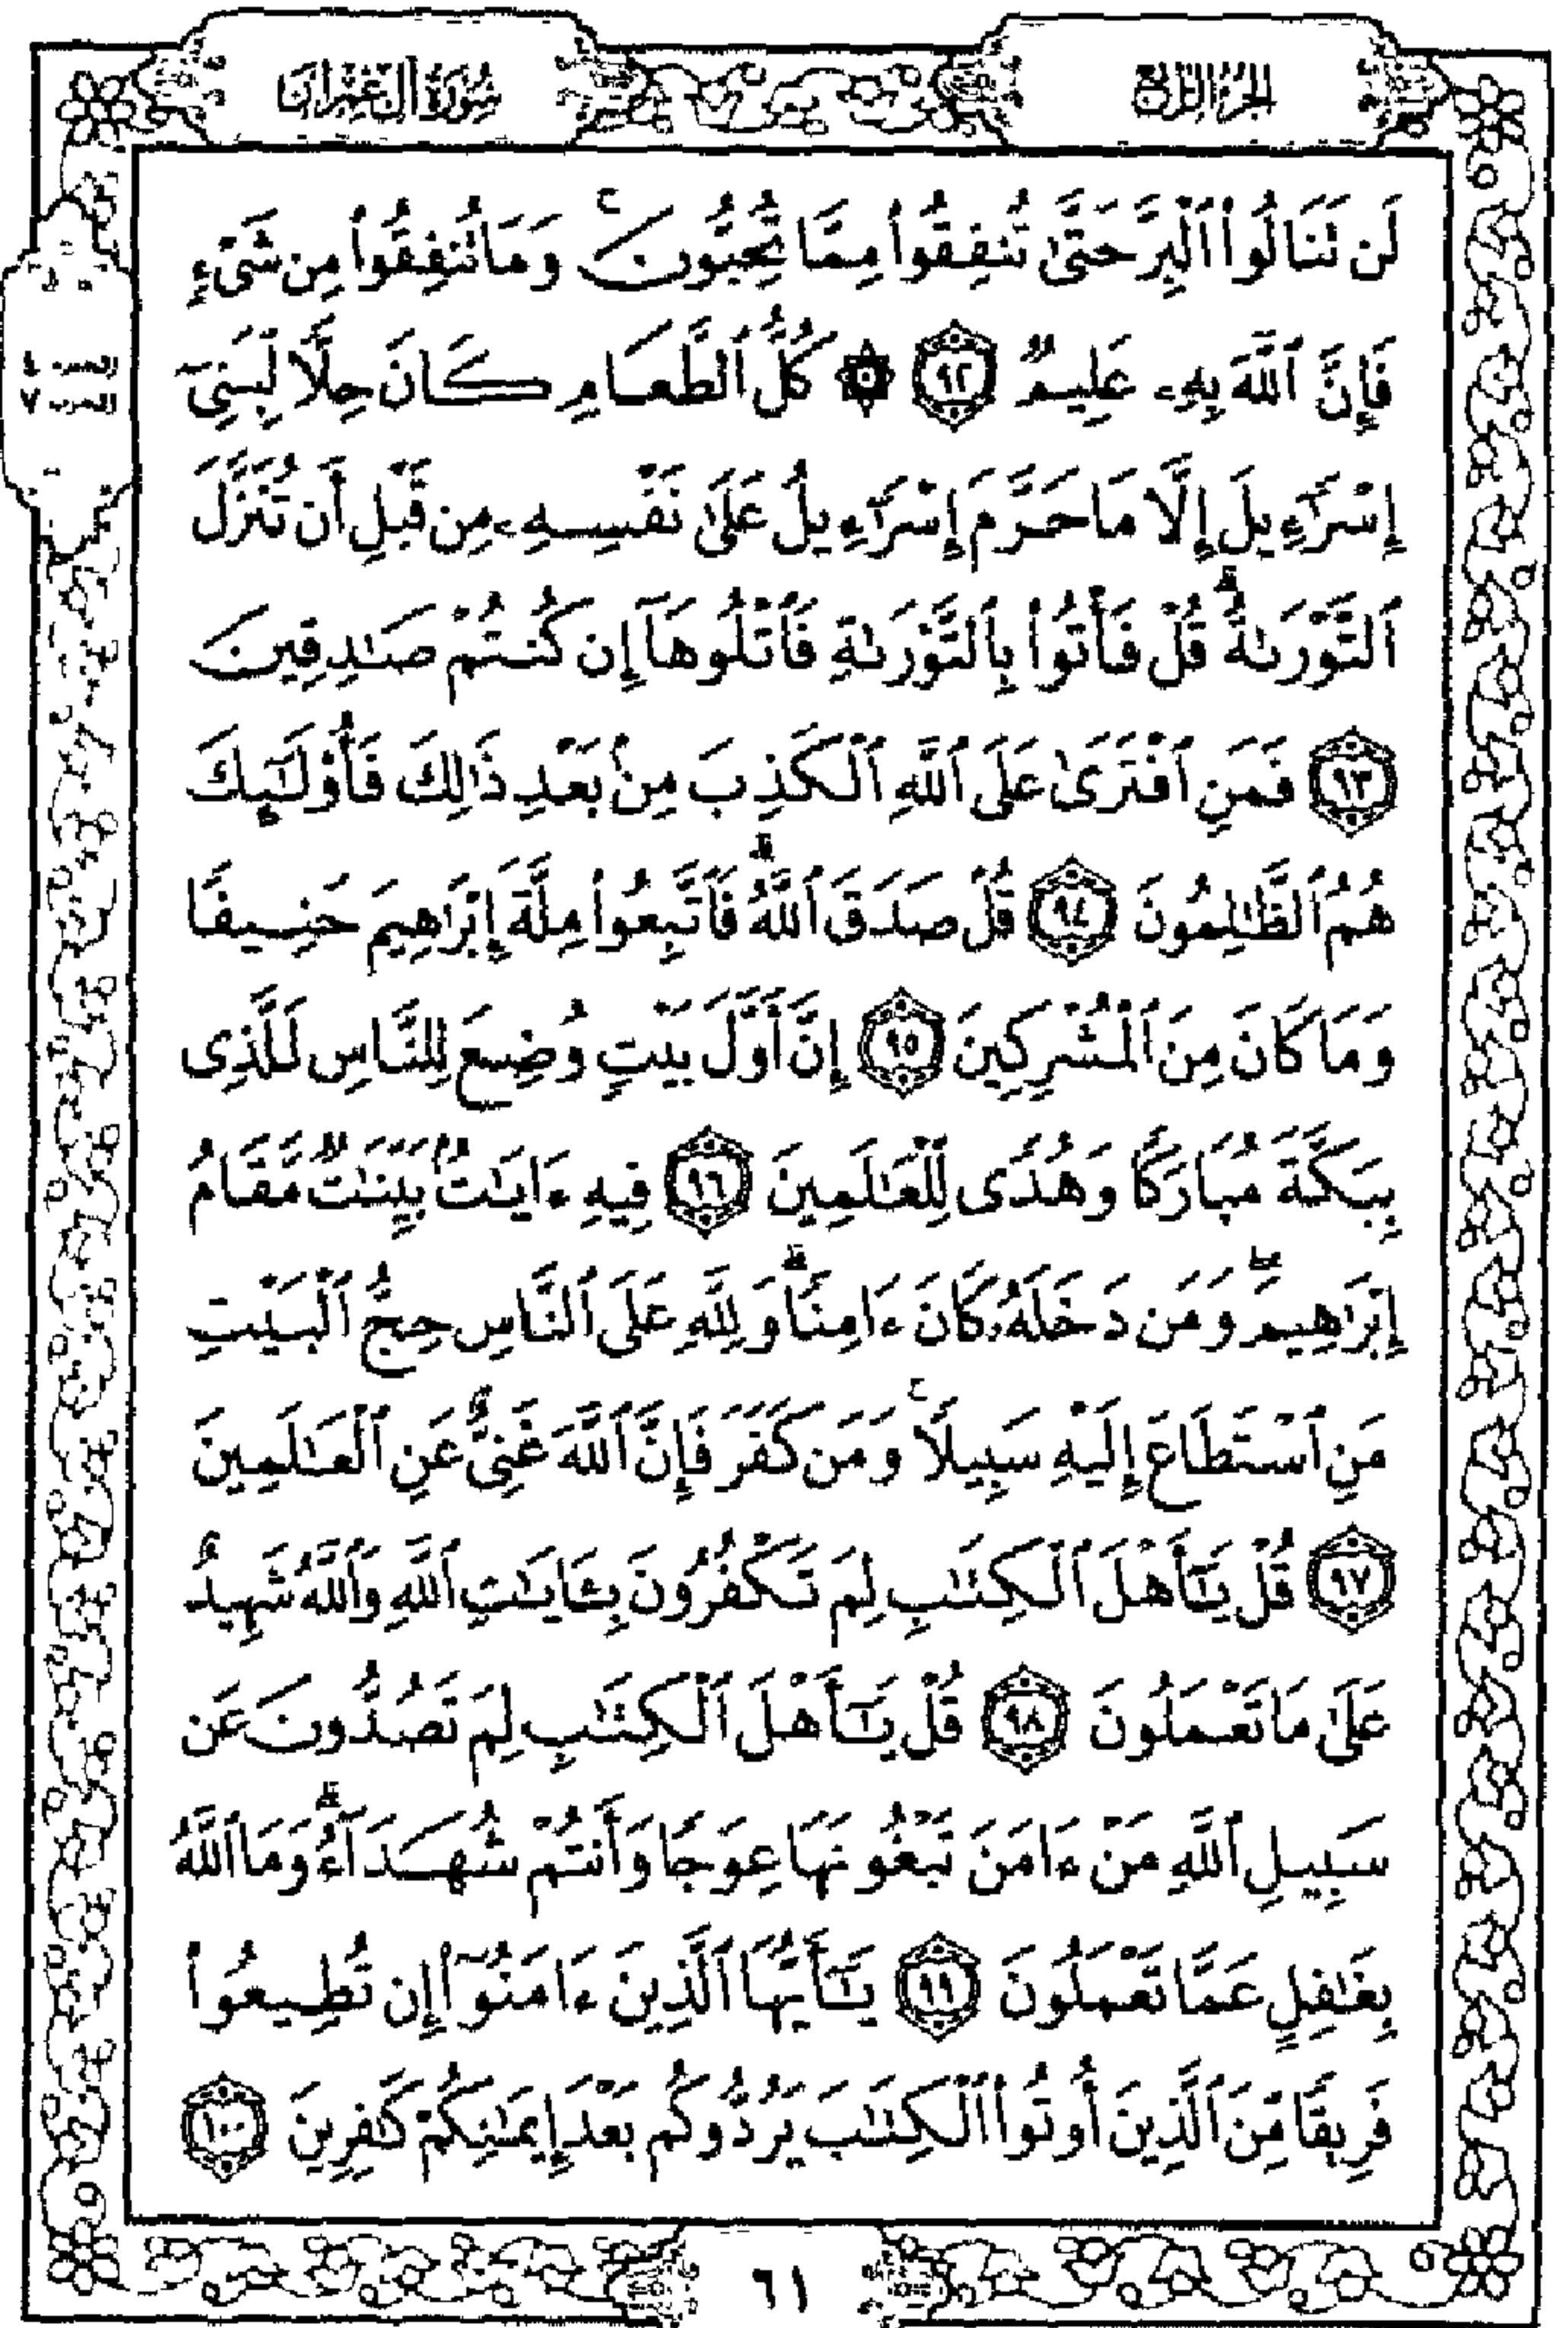 الجزء الرابع
سورة آل عمران
لَن تَنَالُوا۟ ٱلْبِرَّ حَتَّىٰ تُنفِقُوا۟ مِمَّا تُحِبُّونَ ۚ وَمَا تُنفِقُوا۟ مِن شَىْءٍ
فَإِنَّ ٱللَّهَ بِهِۦ عَلِيمٌ ٩٢ ۞ كُلُّ ٱلطَّعَامِ كَانَ حِلًّا لِّبَنِىٓ
إِسْرَٰٓءِيلَ إِلَّا مَا حَرَّمَ إِسْرَٰٓءِيلُ عَلَىٰ نَفْسِهِۦ مِن قَبْلِ أَن تُنَزَّلَ
ٱلتَّوْرَىٰةُ ۗ قُلْ فَأْتُوا۟ بِٱلتَّوْرَىٰةِ فَٱتْلُوهَآ إِن كُنتُمْ صَٰدِقِينَ
٩٣ فَمَنِ ٱفْتَرَىٰ عَلَى ٱللَّهِ ٱلْكَذِبَ مِنۢ بَعْدِ ذَٰلِكَ فَأُو۟لَٰٓئِكَ
هُمُ ٱلظَّٰلِمُونَ ٩٤ قُلْ صَدَقَ ٱللَّهُ ۗ فَٱتَّبِعُوا۟ مِلَّةَ إِبْرَٰهِيمَ حَنِيفًا
وَمَا كَانَ مِنَ ٱلْمُشْرِكِينَ ٩٥ إِنَّ أَوَّلَ بَيْتٍ وُضِعَ لِلنَّاسِ لَلَّذِى
بِبَكَّةَ مُبَارَكًا وَهُدًى لِّلْعَٰلَمِينَ ٩٦ فِيهِ ءَايَٰتٌۢ بَيِّنَٰتٌ مَّقَامُ
إِبْرَٰهِيمَ ۖ وَمَن دَخَلَهُۥ كَانَ ءَامِنًا ۗ وَلِلَّهِ عَلَى ٱلنَّاسِ حِجُّ ٱلْبَيْتِ
مَنِ ٱسْتَطَاعَ إِلَيْهِ سَبِيلًا ۚ وَمَن كَفَرَ فَإِنَّ ٱللَّهَ غَنِىٌّ عَنِ ٱلْعَٰلَمِينَ
٩٧ قُلْ يَٰٓأَهْلَ ٱلْكِتَٰبِ لِمَ تَكْفُرُونَ بِـَٔايَٰتِ ٱللَّهِ وَٱللَّهُ شَهِيدٌ
عَلَىٰ مَا تَعْمَلُونَ ٩٨ قُلْ يَٰٓأَهْلَ ٱلْكِتَٰبِ لِمَ تَصُدُّونَ عَن
سَبِيلِ ٱللَّهِ مَنْ ءَامَنَ تَبْغُونَهَا عِوَجًا وَأَنتُمْ شُهَدَآءُ ۗ وَمَا ٱللَّهُ
بِغَٰفِلٍ عَمَّا تَعْمَلُونَ ٩٩ يَٰٓأَيُّهَا ٱلَّذِينَ ءَامَنُوٓا۟ إِن تُطِيعُوا۟
فَرِيقًا مِّنَ ٱلَّذِينَ أُوتُوا۟ ٱلْكِتَٰبَ يَرُدُّوكُم بَعْدَ إِيمَٰنِكُمْ كَٰفِرِينَ ١٠٠
٦١